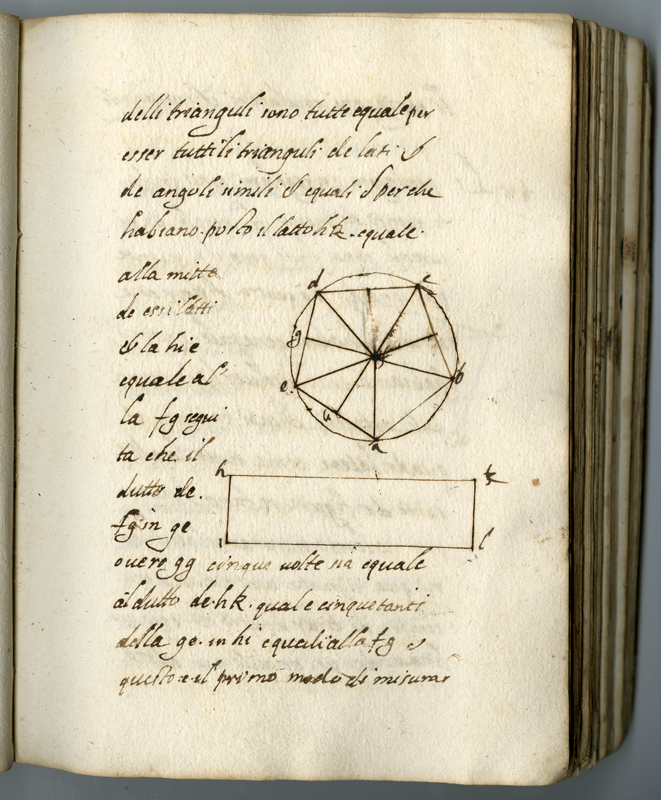 delli trianguli sono tutte equale per
esser tutti li trianguli de lati &
de anguli simili & equali & perche
habiano posto il latto hk. equale
alla mitta
de essi latti
& la hi e
equale al
la fg segui
ta che il
dutto de.
fg in ge
overo gg cinque volte na equale
al dutto de. hk. quale cinque tanti
della ge. in hi equali alla fg &
questo e il primo modo di misurar
d
c
g
b
e
a
h
k
i
l